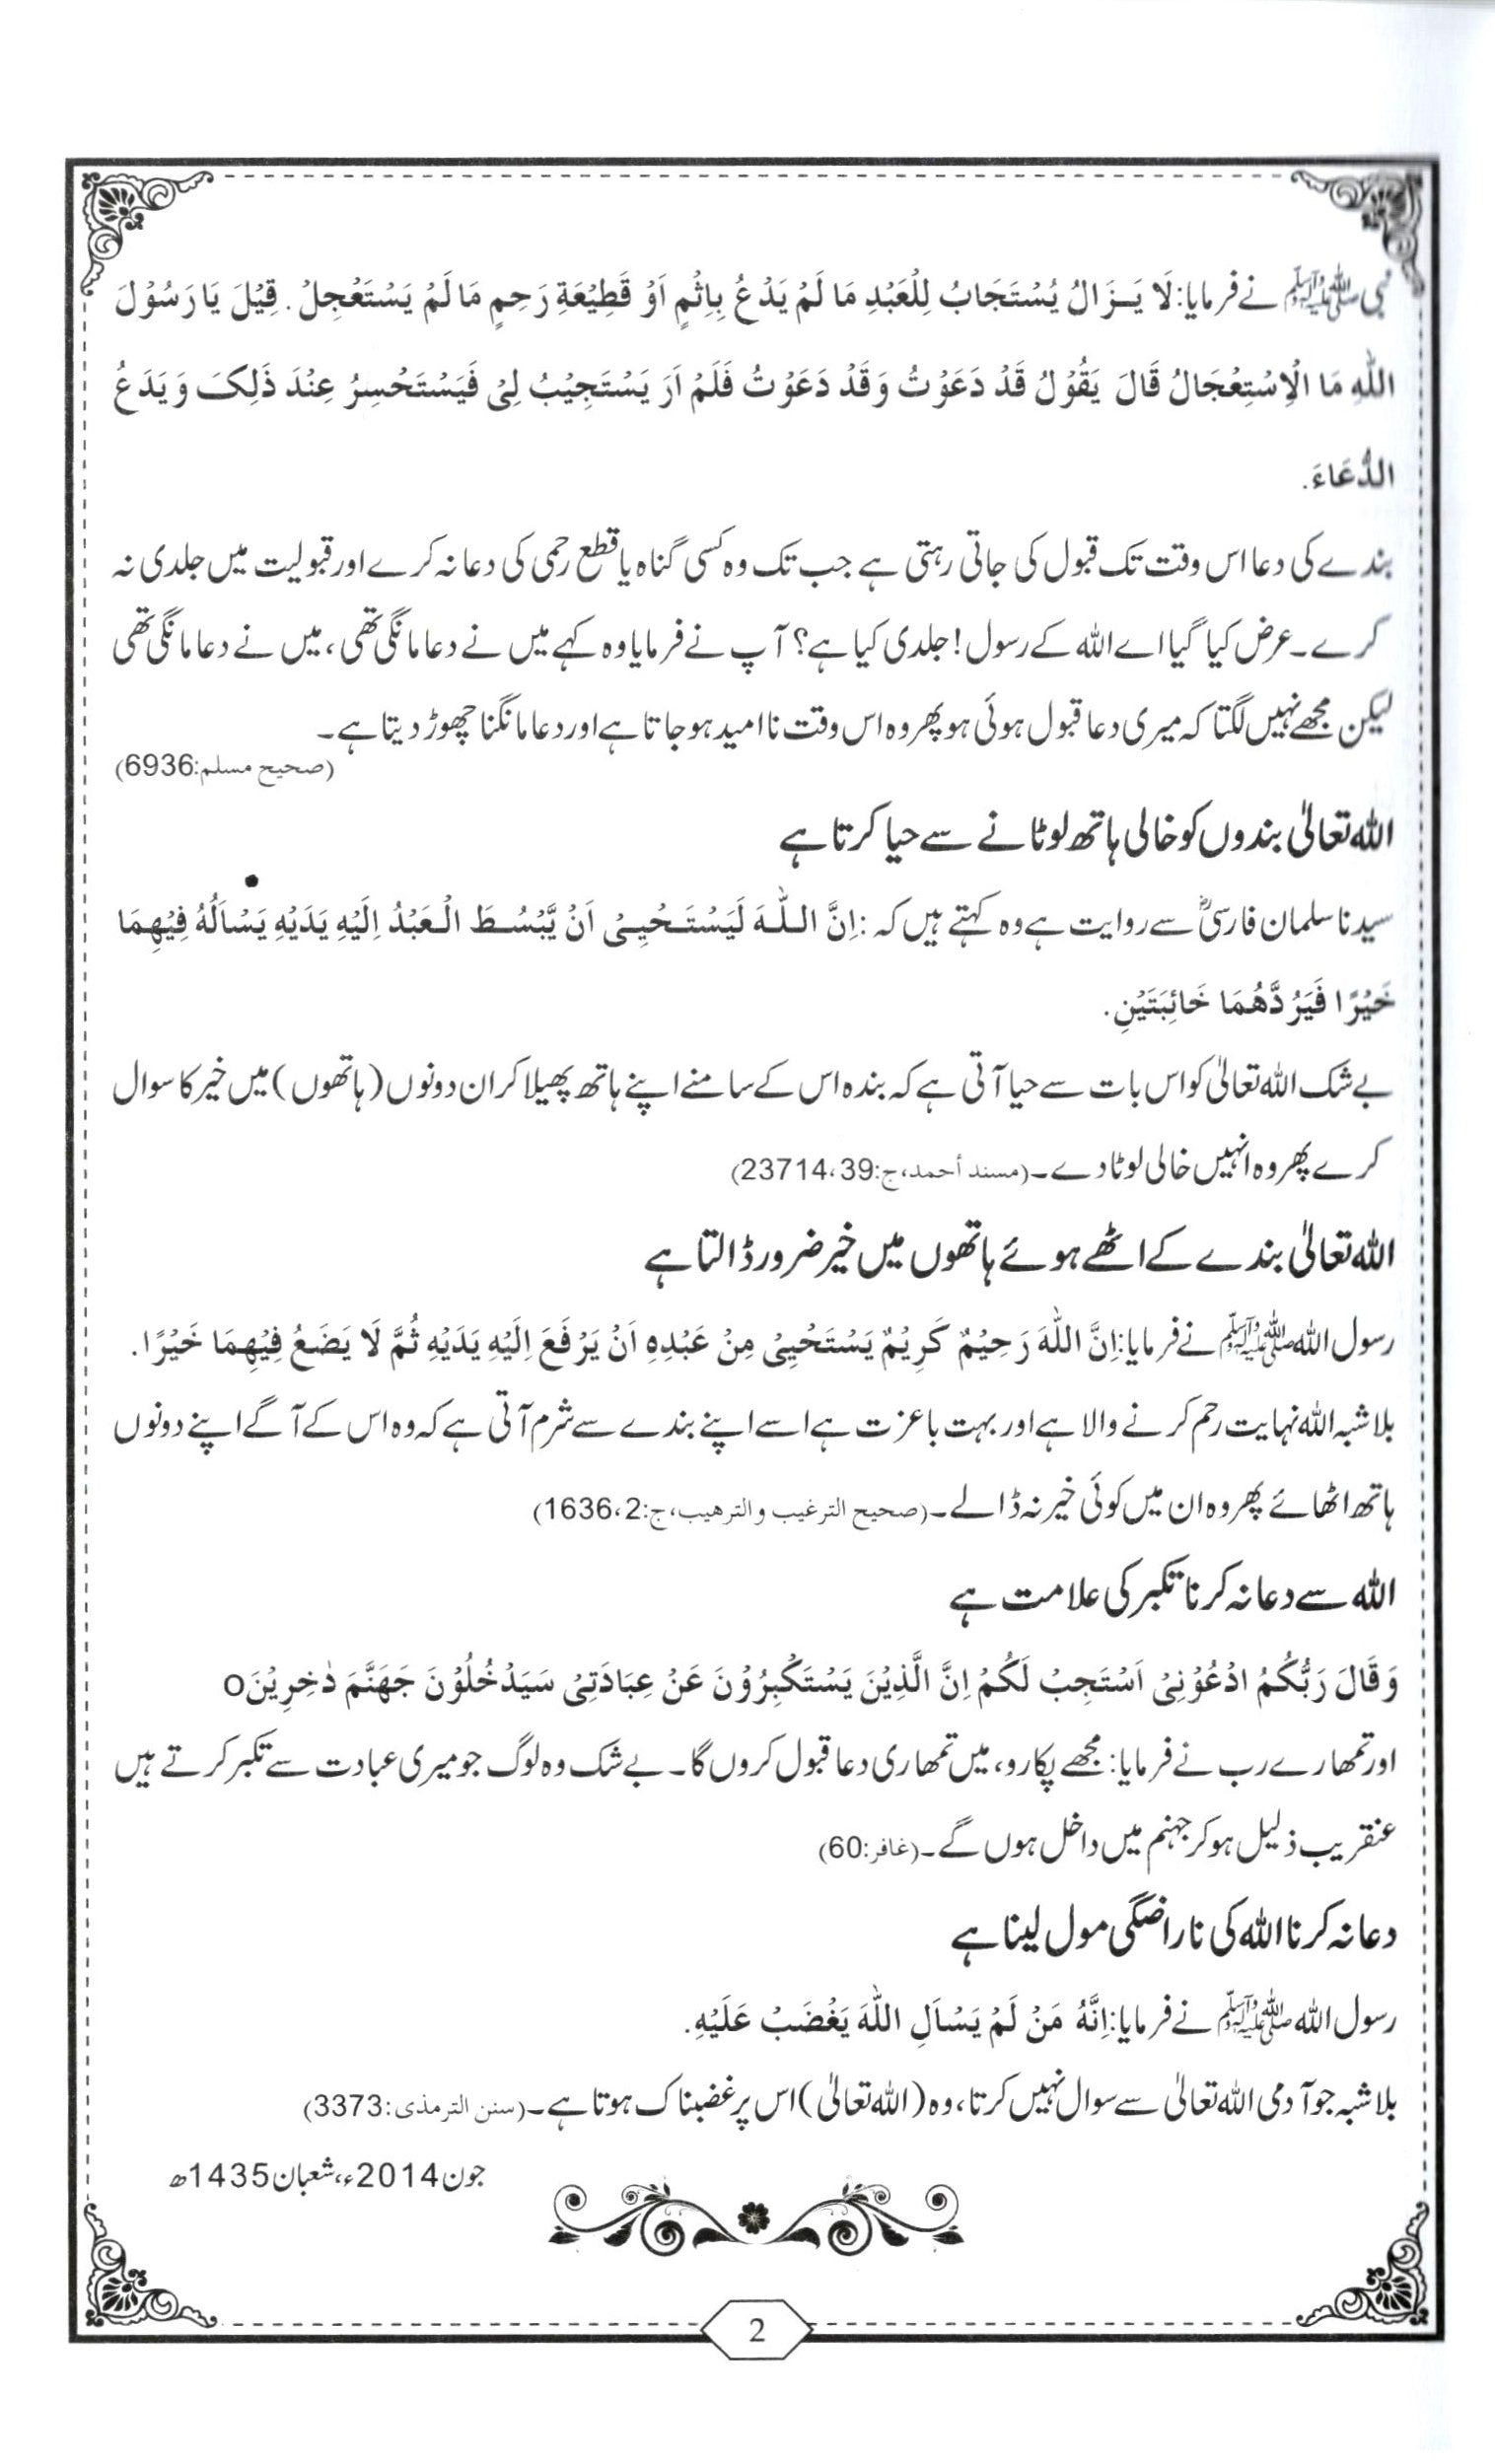 نبی ﷺ نے فرمایا: لَا يَـزَالُ يُسْتَجَابُ لِلْعَبْدِ مَا لَمْ يَدْعُ بِاِثْمٍ اَوْ قَطِيْعَةِ رَحِمٍ مَا لَمْ يَسْتَعْجِلْ. قِيْلَ يَا رَسُوْلَ
اللهِ مَا الْاِسْتِعْجَالُ قَالَ يَقُوْلُ قَدْ دَعَوْتُ وَقَدْ دَعَوْتُ فَلَمْ اَرَ يَسْتَجِيْبُ لِىْ فَيَسْتَحْسِرُ عِنْدَ ذَلِكَ وَيَدَعُ
الدُّعَاءَ.
بندے کی دعا اس وقت تک قبول کی جاتی رہتی ہے جب تک وہ کسی گناہ یا قطع رحمی کی دعا نہ کرے اور قبولیت میں جلدی نہ
کرے۔ عرض کیا گیا اے اللہ کے رسول! جلدی کیا ہے؟ آپ نے فرمایا وہ کہے میں نے دعا مانگی تھی، میں نے دعا مانگی تھی
لیکن مجھے نہیں لگتا کہ میری دعا قبول ہوئی ہو پھر وہ اس وقت ناامید ہو جاتا ہے اور دعا مانگنا چھوڑ دیتا ہے۔
(صحیح مسلم:6936)
اللہ تعالیٰ بندوں کو خالی ہاتھ لوٹانے سے حیا کرتا ہے
سیدنا سلمان فارسیؓ سے روایت ہے وہ کہتے ہیں کہ: اِنَّ اللّٰهَ لَيَسْتَحْيِىْ اَنْ يَّبْسُطَ الْعَبْدُ اِلَيْهِ يَدَيْهِ يَسْاَلُهُ فِيْهِمَا
خَيْرًا فَيَرُدَّهُمَا خَائِبَتَيْنِ.
بے شک اللہ تعالیٰ کو اس بات سے حیا آتی ہے کہ بندہ اس کے سامنے اپنے ہاتھ پھیلا کر ان دونوں (ہاتھوں) میں خیر کا سوال
کرے پھر وہ انہیں خالی لوٹا دے۔ (مسند أحمد،ج:39،23714)
اللہ تعالیٰ بندے کے اٹھے ہوئے ہاتھوں میں خیر ضرور ڈالتا ہے
رسول اللہ ﷺ نے فرمایا: اِنَّ اللّٰهَ رَحِيْمٌ كَرِيْمٌ يَسْتَحْيِىْ مِنْ عَبْدِهِ اَنْ يَرْفَعَ اِلَيْهِ يَدَيْهِ ثُمَّ لَا يَضَعُ فِيْهِمَا خَيْرًا.
بلاشبہ اللہ نہایت رحم کرنے والا ہے اور بہت باعزت ہے اسے اپنے بندے سے شرم آتی ہے کہ وہ اس کے آگے اپنے دونوں
ہاتھ اٹھائے پھر وہ ان میں کوئی خیر نہ ڈالے۔ (صحیح الترغیب والترھیب،ج:2،1636)
اللہ سے دعا نہ کرنا تکبر کی علامت ہے
وَقَالَ رَبُّكُمُ ادْعُوْنِىْ اَسْتَجِبْ لَكُمْ اِنَّ الَّذِيْنَ يَسْتَكْبِرُوْنَ عَنْ عِبَادَتِىْ سَيَدْخُلُوْنَ جَهَنَّمَ دٰخِرِيْنَ o
اور تمھارے رب نے فرمایا: مجھے پکارو، میں تمھاری دعا قبول کروں گا۔ بے شک وہ لوگ جو میری عبادت سے تکبر کرتے ہیں
عنقریب ذلیل ہو کر جہنم میں داخل ہوں گے۔ (غافر:60)
دعا نہ کرنا اللہ کی ناراضگی مول لینا ہے
رسول اللہ ﷺ نے فرمایا: اِنَّهُ مَنْ لَمْ يَسْاَلِ اللّٰهَ يَغْضَبْ عَلَيْهِ.
بلاشبہ جو آدمی اللہ تعالیٰ سے سوال نہیں کرتا، وہ (اللہ تعالیٰ) اس پر غضبناک ہوتا ہے۔ (سنن الترمذی:3373)
جون 2014ء، شعبان 1435ھ
2